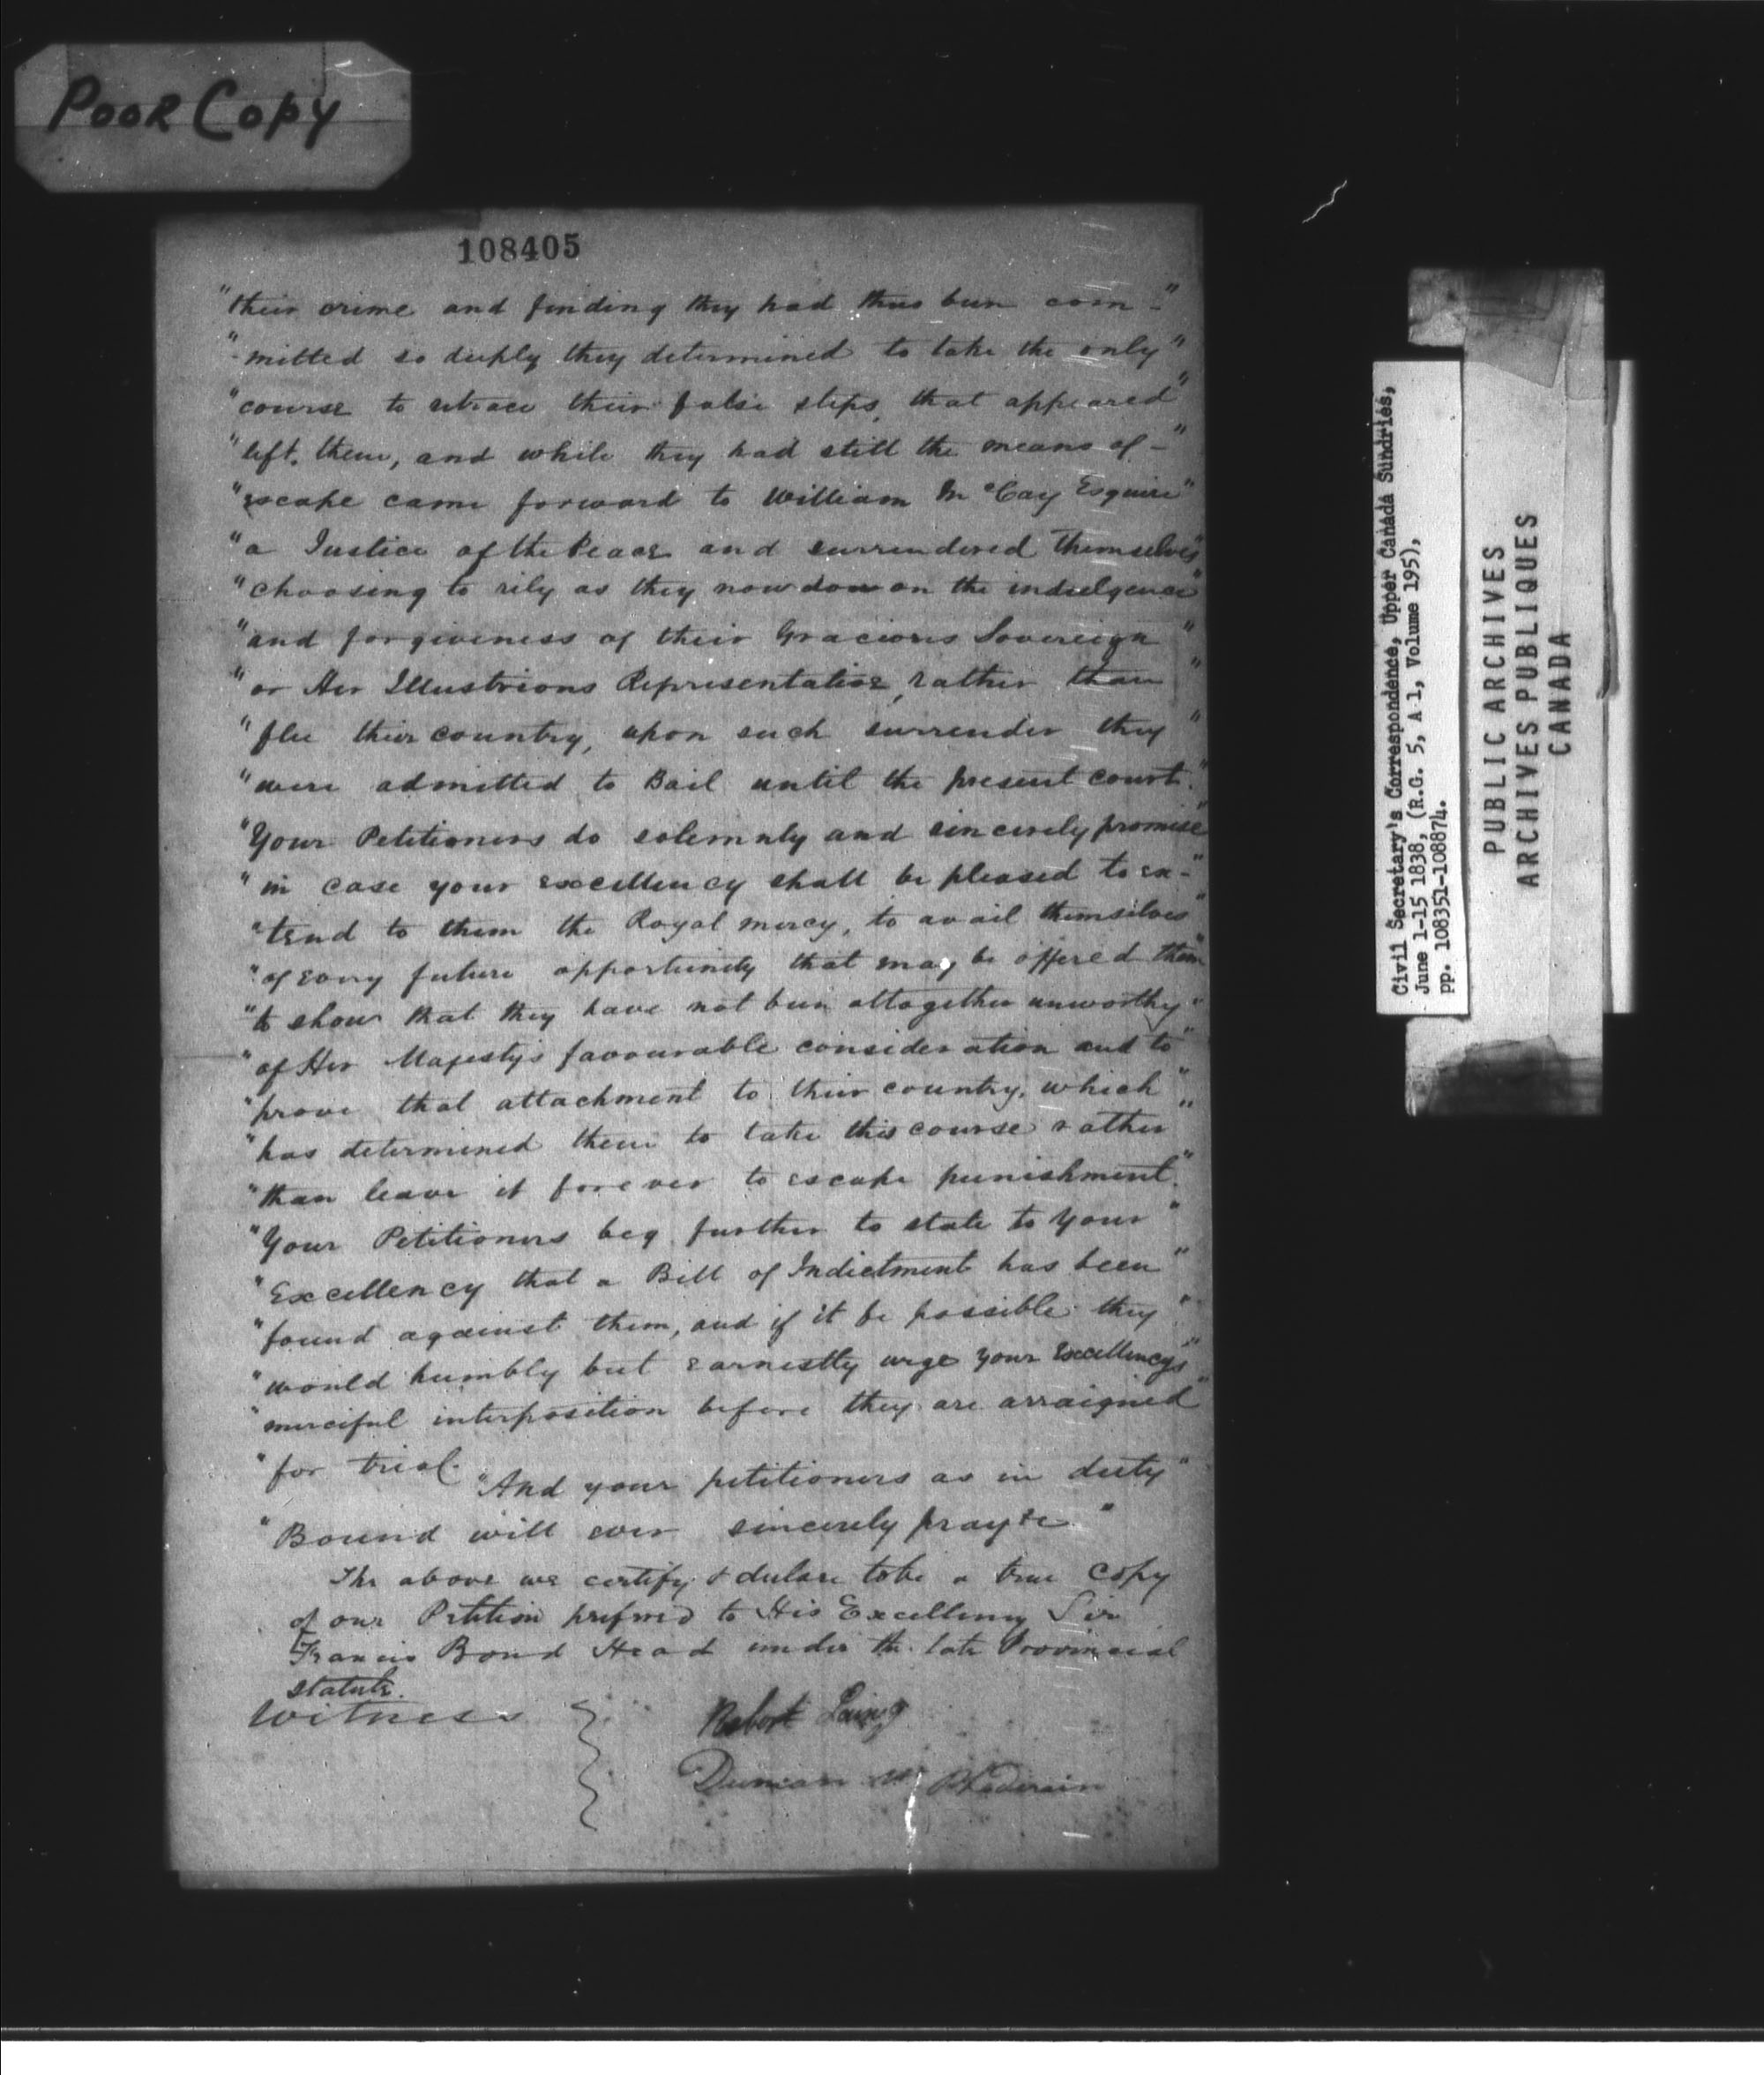 POOR COPY
108405
"their crime and finding they had thus been com-"
"-mitted so deeply they determined to take the only"
"course to retrace their false steps, that appeared"
"left, them, and while they had still the means of-"
"escape came forward to William McCay Esquire"
"a Justice of the Peace and surrendered themselves"
"choosing to rely as they now do on the indulgence"
"and forgiveness of their Gracious Sovereign"
"or Her Illustrious Representative, rather than"
"flee their country, upon such surrender they"
"were admitted to Bail until the present court."
"Your Petitioners do solemnly and sincerely promise"
"in case your excellency shall be pleased to ex-"
"tend to them the Royal mercy, to avail themselves"
"of every future opportunity that may be offered them"
"to show that they have not been altogether unworthy"
"of Her Majestys favourable consideration and to"
"prove that attachment to their country, which"
"has determined them to take this course rather"
"than leave it forever to escape punishment."
"Your Petitioners beg further to state to Your"
"Excellency that a Bill of Indictment has been"
"found against them, and if it be possible they"
"would humbly but earnestly urge your Excellencys"
"merciful interposition before they are arraigned"
"for trial.
"And your petitioners as in duty"
"Bound will ever sincerely pray &c."
The above we certify & declare to be a true Copy
of our Petition preferred to His Excellency Sir
Francis Bond Head under the late Provincial
Statute.
Witness
Robert Laing
Duncan Mc
Civil Secretary's Correspondence, Upper Canada Sundries,
June 1-15 1838, (R.G. 5, A 1, Volume 195),
pp. 108351-108874.
PUBLIC ARCHIVES
ARCHIVES PUBLIQUES
CANADA